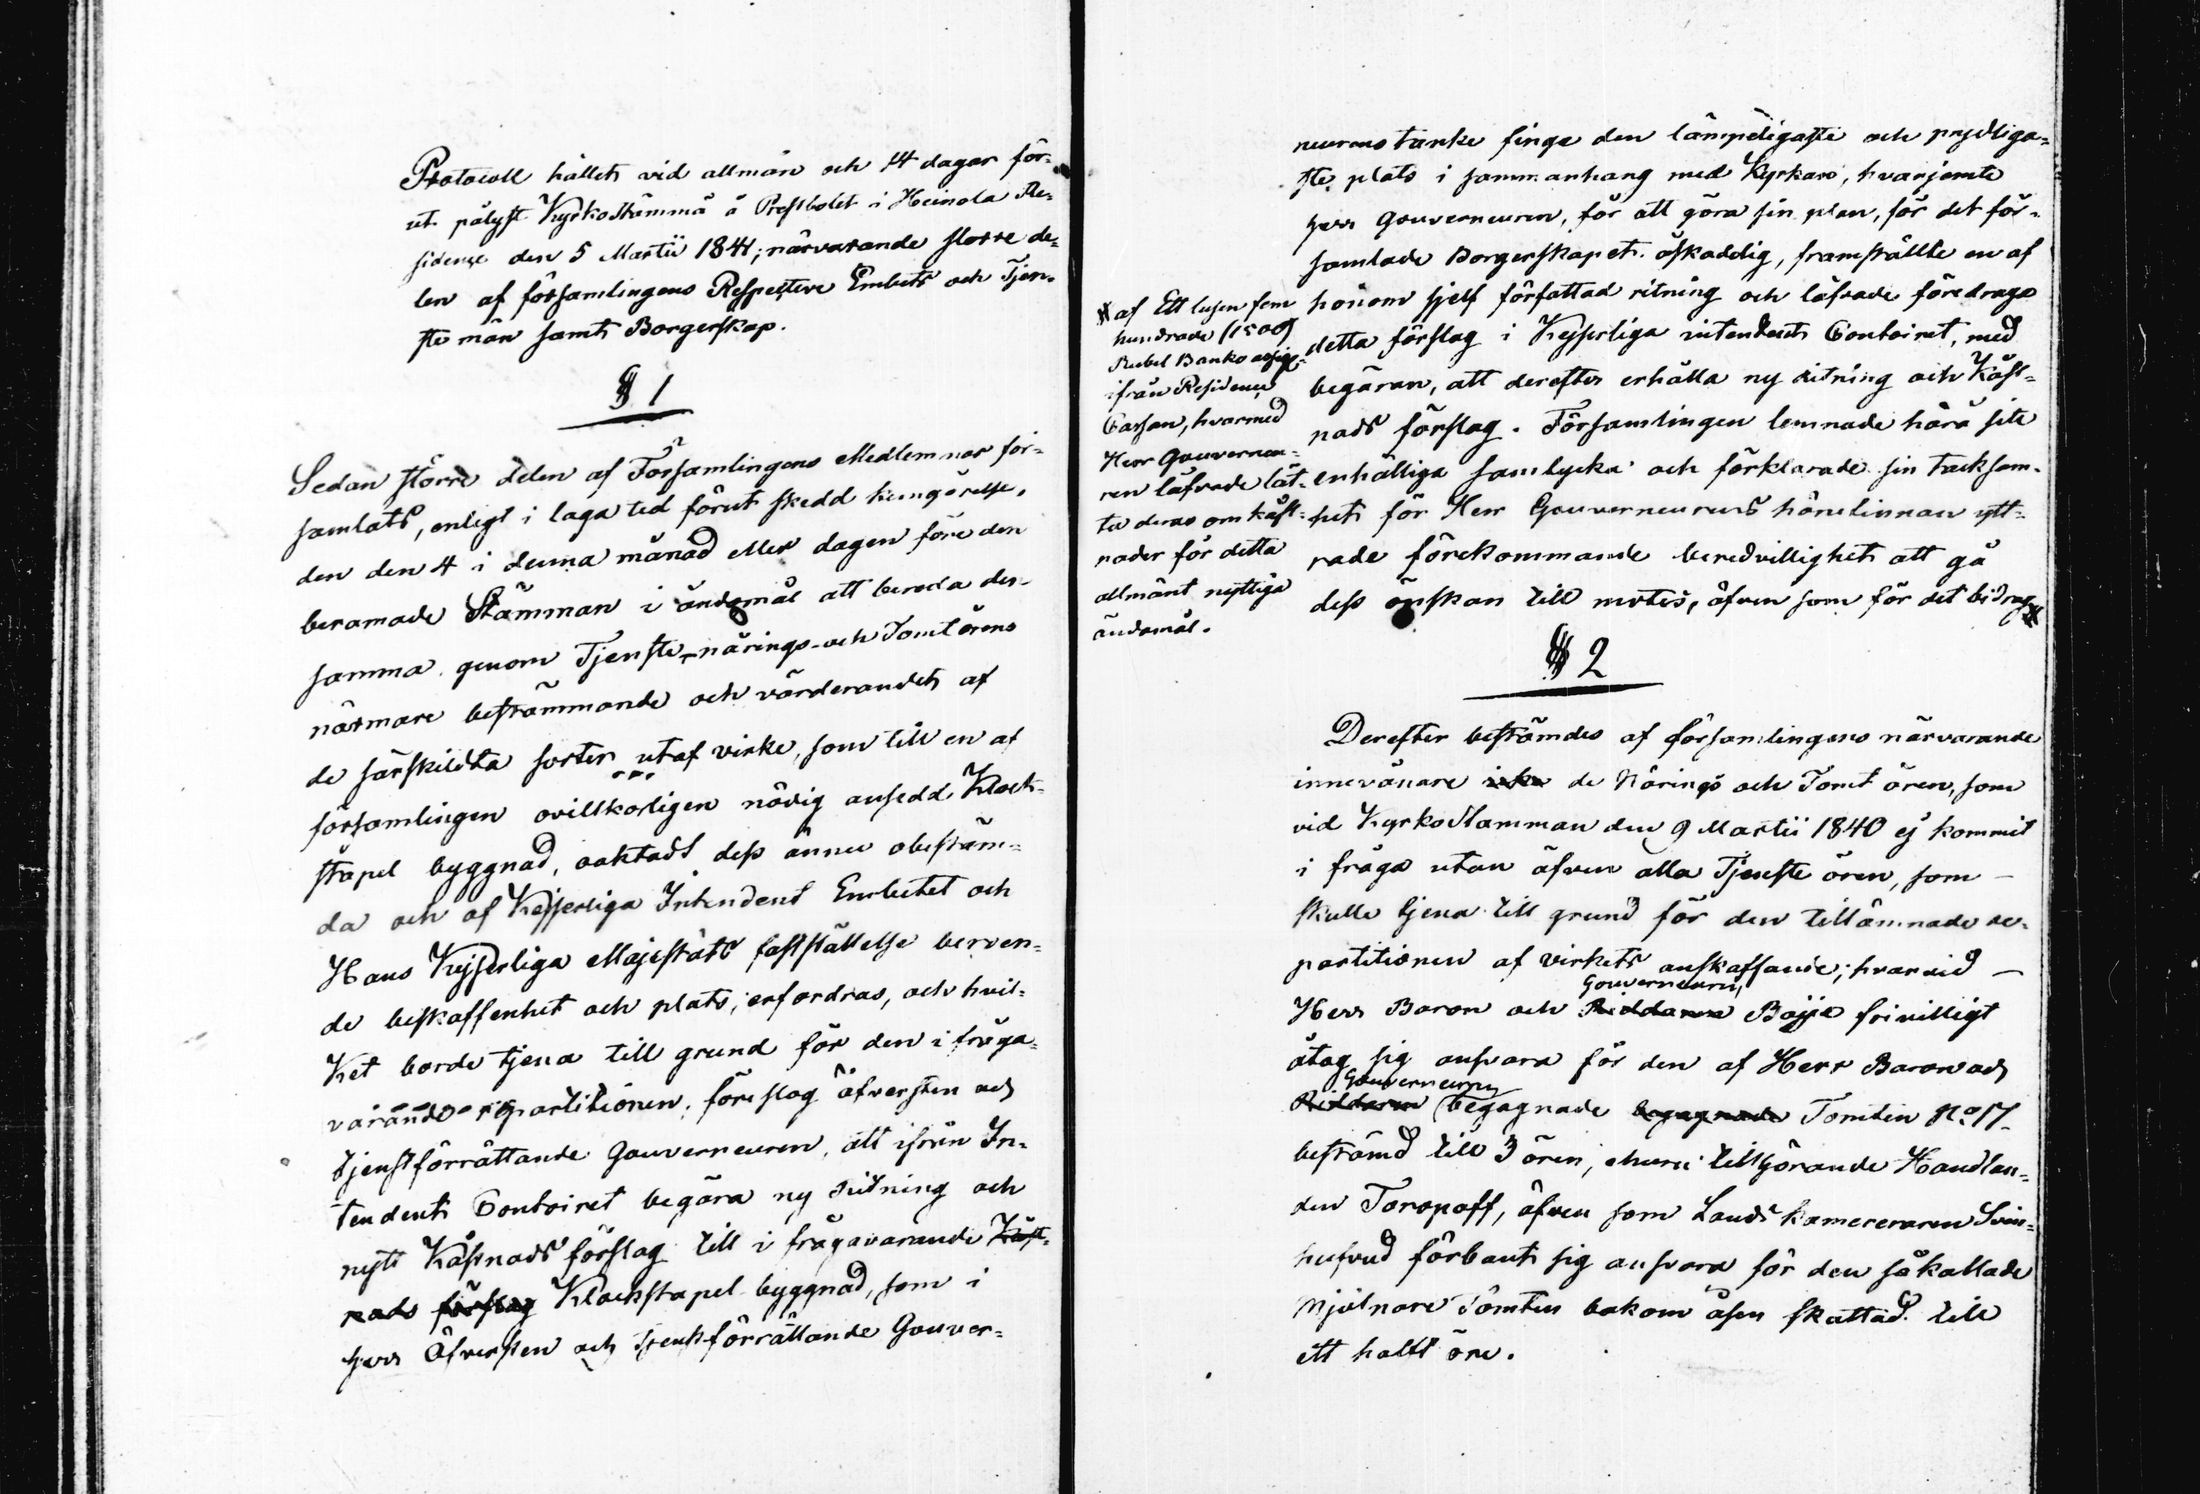 Protocoll hållet vid allmän och 14 dagar för-
ut pålyst Kyrkostämma å Prestbolet i Heinola Re-
sidence den 5 Martii 1841; närvarande större de-
len af församlingens Respective Embets och Tjen-
ste män samt Borgerskap.
§ 1
Sedan större delen af Församlingens Medlemmar för-
samlats, enligt i laga tid förut skedd kungörelse,
den den 4 i denna månad eller dagen före den
beramade Stämman i ändamål att bereda den-
samma genom Tjenste-, närings- och Tomtörens
närmare bestämmande och värderandet af
de särskildta sorter utaf virke, som till en af
församlingen ovillkorligen nödig ansedd Klock-
stapel byggnad, oaktadt dess ännu obestäm-
da och af Kejserliga Intendent Embetet och
Hans Kejserliga Majestäts fastställelse beroen-
de beskaffenhet och plats, erfordras, och hvil-
ket borde tjena till grund för den i fråga-
varande repartitionen; föreslog Öfversten och
tjenstförrättande Gouverneuren, att ifrån In-
tendents Contoiret begära ny ritning och
nytt Kåstnads förslag till i frågavarande Kåst-
nads förslag Klockstapel byggnad, som i
Herr Öfversten och tjenstförrättande Gouver-
neurens tanke finge den lämpeligaste och prydliga-
ste plats i sammanhang med Kyrkan, hvarjemte
Herr Gouverneuren, för att göra sin plan, för det för-
samlade Borgerskapet åskådlig, framställte en af
honom sjelf författad ritning och låfvade föredraga
detta förslag i Kejserliga intendents Contoiret, med
begäran, att derefter erhålla ny ritning och Kåst-
nads förslag. Församlingen lemnade härå sitt
enhälliga samtycke och förklarade sin tacksam-
het för Herr Gouverneurens härutinnan ytt-
rade förekommande beredvillighet att gå
dess önskan till mötes, äfven som för det bidrag
af Ett tusen fem
hundrade (1500)
Rubel Banko assign.
ifrån Residence
Cassan, hvarmed
Herr Gouverneu-
ren låfvade lät-
ta deras omkåst-
nader för detta
allmänt nyttiga
ändamål.
§ 2
Derefter bestämdes af församlingens närvarande
innevånare icke de Närings och Tomt ören, som
vid Kyrkostämman den 9 Martii 1840 ej kommit
i fråga utan äfven alla Tjenste ören, som
skulle tjena till grund för den tillämnade re-
partitionen af virkets anskaffande; hvarvid
Gouverneuren
Herr Baron och Riddaren Boije frivilligt
åtog sig ansvara för den af Herr Baron och
Gouverneuren
Riddaren begagnade begagnade Tomten No 17
bestämd till 3 ören, ehuru tillhörande Handlan-
den Toropoff, äfven som Lands kamereraren Svin-
hufvud förbant sig ansvara för den såkallade
Mjölnare Tomten bakom åsen skattad till
ett halft öre.